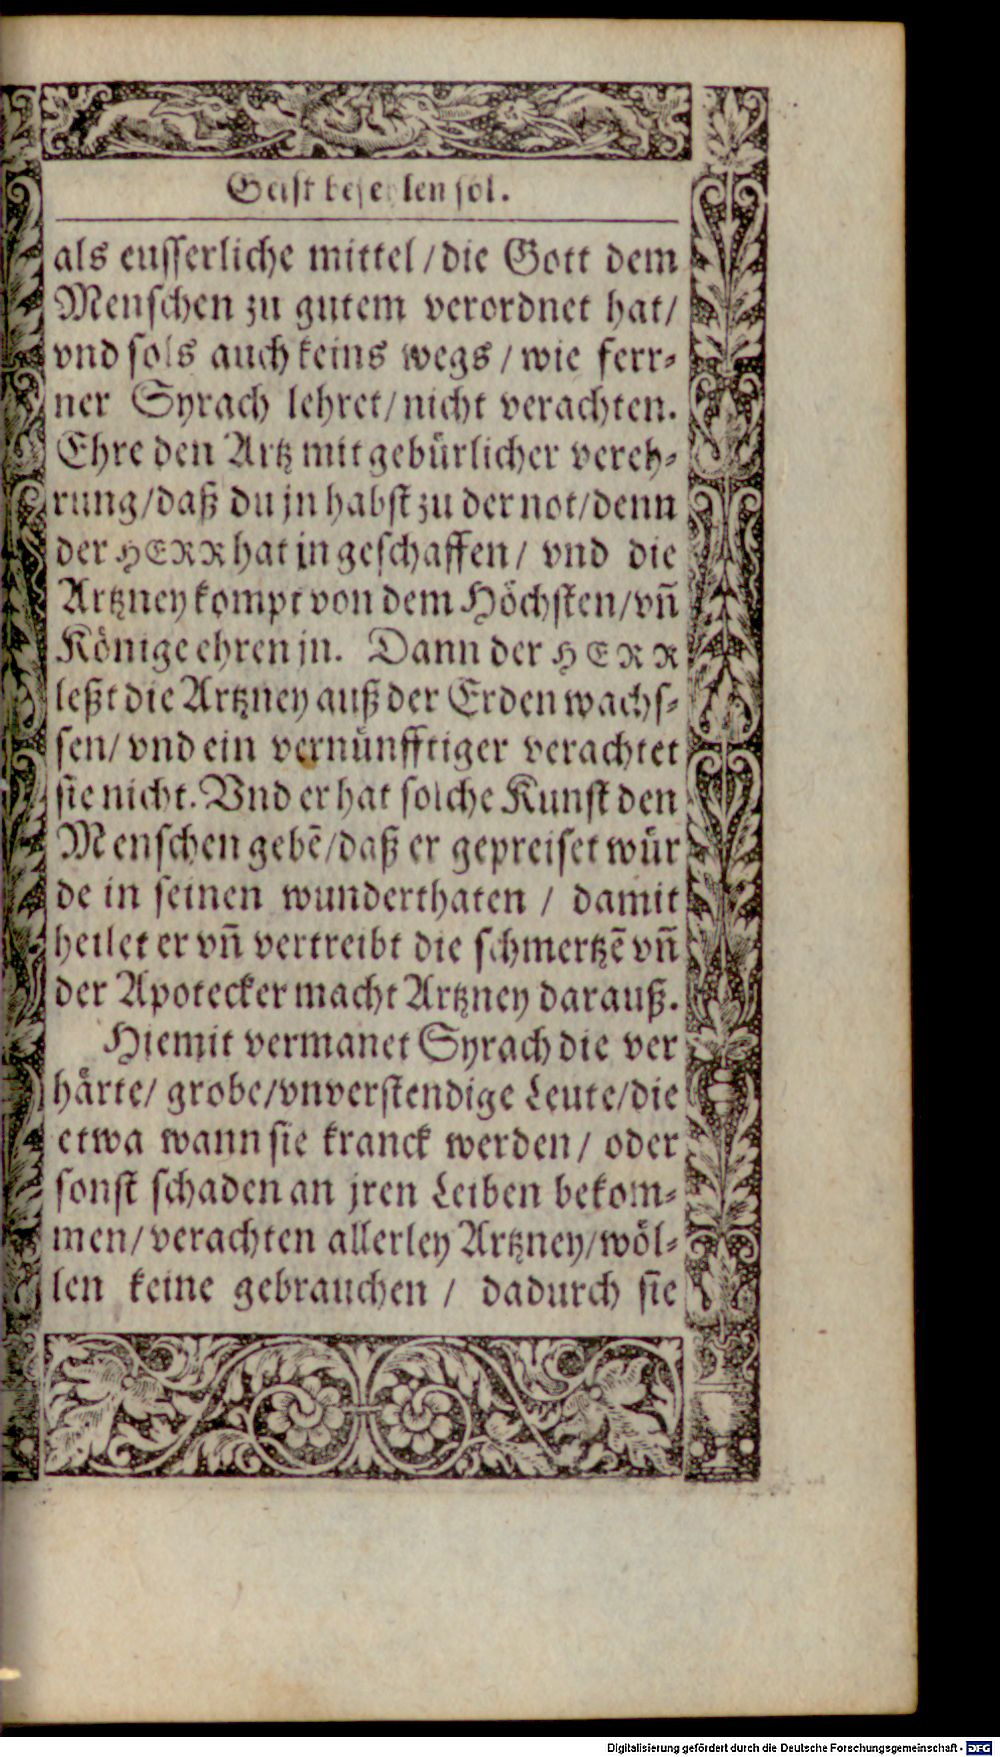 Geist befehlen sol.
als eusserliche mittel / die Gott dem
Menschen zu gutem verordnet hat /
vnd sols auch keins wegs / wie ferr-
ner Syrach lehret / nicht verachten.
Ehre den Artz mit gebürlicher vereh-
rung / daß du jn habst zu der not / denn
der HERR hat jn geschaffen / vnd die
Artzney kompt von dem Höchsten / vñ
Könige ehren jn. Dann der HERR
leßt die Artzney auß der Erden wachs-
sen / vnd ein vernünfftiger verachtet
sie nicht. Vnd er hat solche Kunst den
Menschen gebẽ / daß er gepreiset wür
de in seinen wunderthaten / damit
heilet er vñ vertreibt die schmertzẽ vñ
der Apotecker macht Artzney darauß.
Hiemit vermanet Syrach die ver
härte / grobe / vnverstendige Leute / die
etwa wann sie kranck werden / oder
sonst schaden an jren Leiben bekom-
men / verachten allerley Artzney / wöl-
len keine gebrauchen / dadurch sie
Digitalisierung gefördert durch die Deutsche Forschungsgemeinschaft - DFG